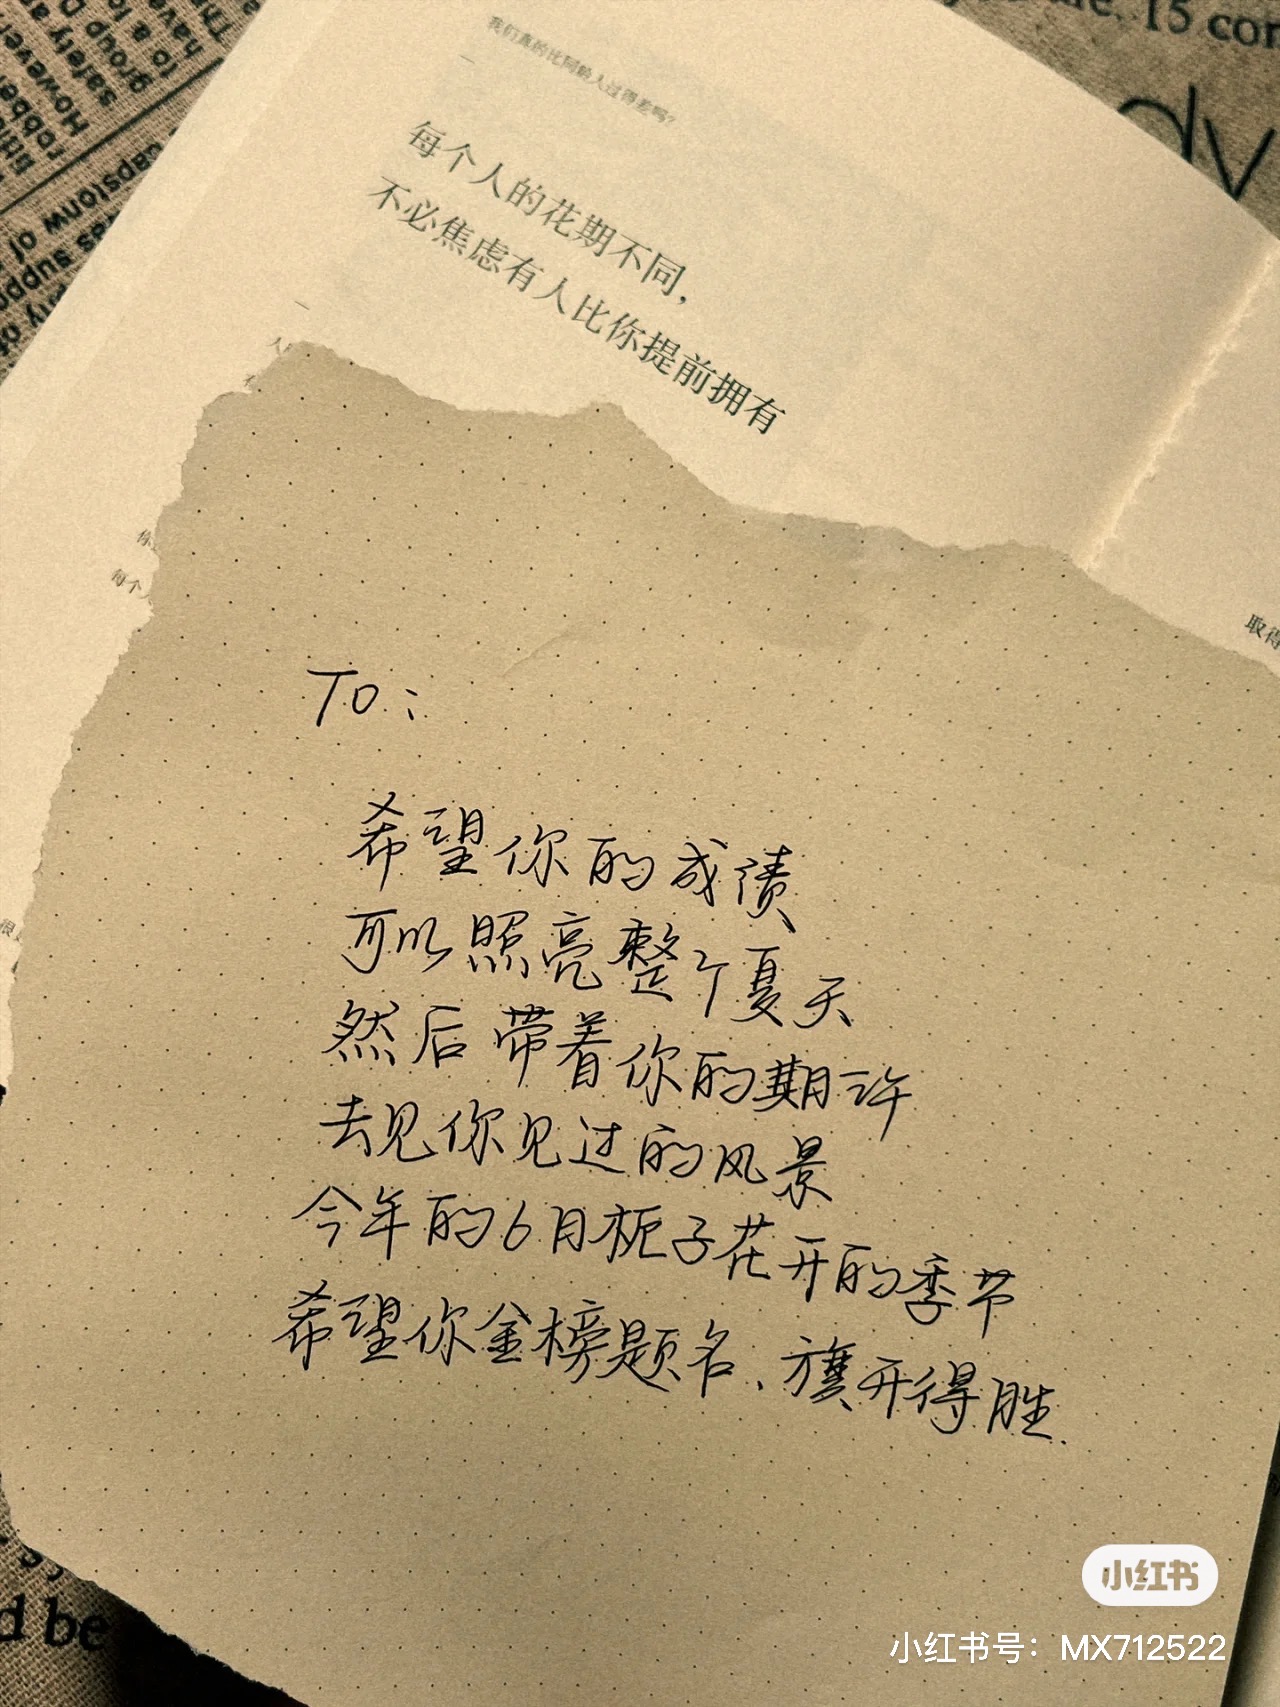 我们真的比同龄人过得差吗?
每个人的花期不同，
不必焦虑有人比你提前拥有
To:
希望你的成绩
可以照亮整个夏天
然后带着你的期许
去见你见过的风景
今年的6月栀子花开的季节
希望你金榜题名、旗开得胜.
取得
15 con
dy
However
safety a
group D
to a lo
capstonw of
as supp
d be
小红书
小红书号：MX712522